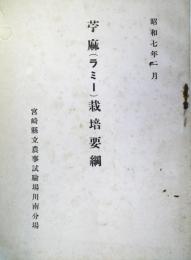 昭和七年二月
苧麻（ラミー）栽培要綱
宮崎縣立農事試驗場川南分場